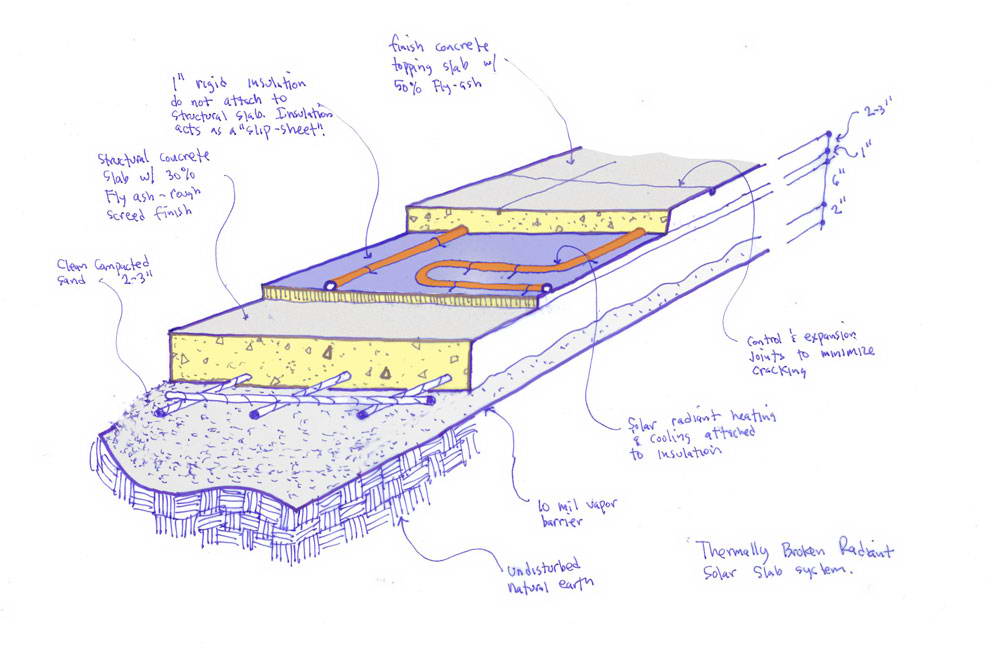 finish concrete
topping slab w/
50% Fly-ash
1" rigid insulation
do not attach to
structural slab. Insulation
acts as a "slip-sheet".
Structural concrete
slab w/ 30%
Fly ash - rough
screed finish
Clean Compacted
sand 2-3"
2-3"
1"
6"
2"
Control & expansion
joints to minimize
cracking
Solar radiant heating
& cooling attached
to insulation
10 mil vapor
barrier
undisturbed
natural earth
Thermally Broken Radiant
Solar Slab system.